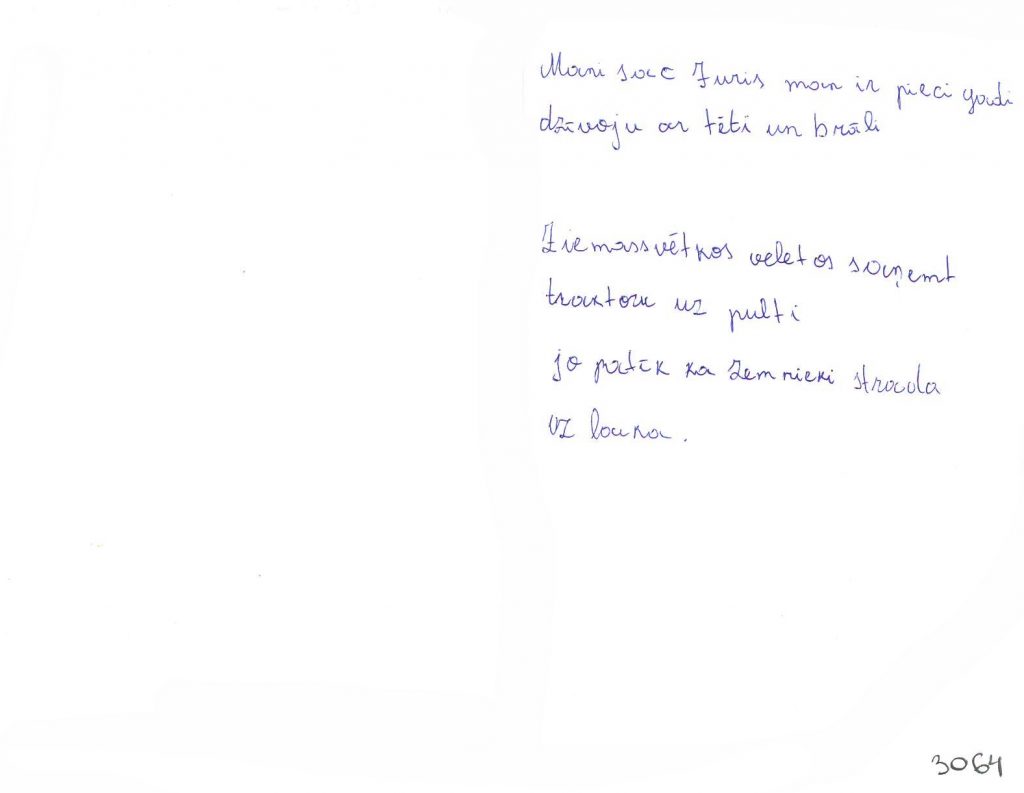 Mani sac Juris man ir pieci gadi
dzīvoju ar tēti un brāli
Ziemassvētkos veletos saņemt
traktoru uz pulti
jo patīk ka zemnieki strada
uz lauka.
3064